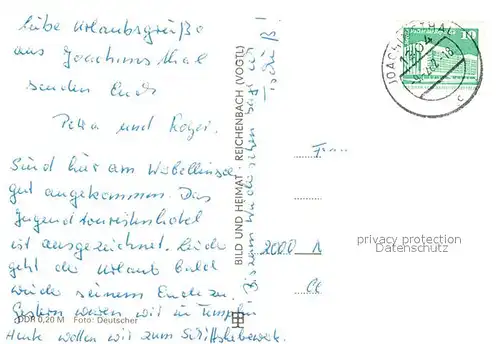 Liebe Urlaubsgrüße
aus Joachimsthal
senden Euch
Petra und Roger.
Sind hier am Werbellinsee
gut angekommen. Das
Jugendtouristenhotel
ist ausgezeichnet. Leider
geht der Urlaub bald
wieder seinem Ende zu.
Gestern waren wir in Templin
Heute wollen wir zum Schiffshebewerk.
Bis zum Wiedersehen sagt man
Tschüß!
DDR 0,20 M Foto: Deutscher
BILD UND HEIMAT · REICHENBACH (VOGTL)
JOACHIMSTHAL
1304
c
10
2000
privacy protection
Datenschutz